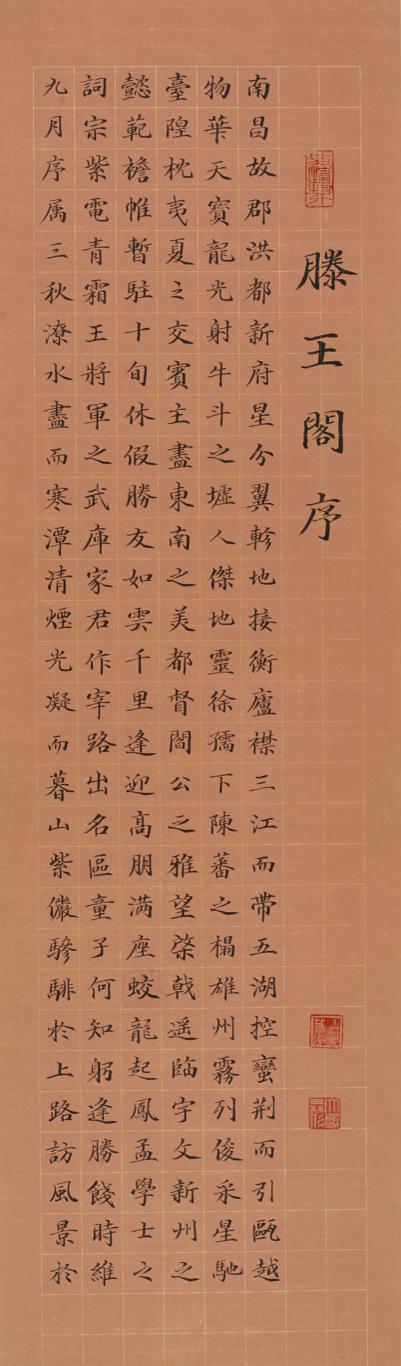 滕王閣序
南昌故郡洪都新府星分翼軫地接衡廬襟三江而帶五湖控蠻荆而引甌越
物華天寶龍光射牛斗之墟人傑地靈徐孺下陳蕃之榻雄州霧列俊采星馳
臺隍枕夷夏之交賓主盡東南之美都督閻公之雅望棨戟遥臨宇文新州之
懿範襜帷暫駐十旬休假勝友如雲千里逢迎高朋满座蛟龍起鳳孟學士之
詞宗紫電青霜王將軍之武庫家君作宰路出名區童子何知躬逢勝餞時維
九月序属三秋潦水盡而寒潭清煙光凝而暮山紫儼驂騑於上路訪風景於